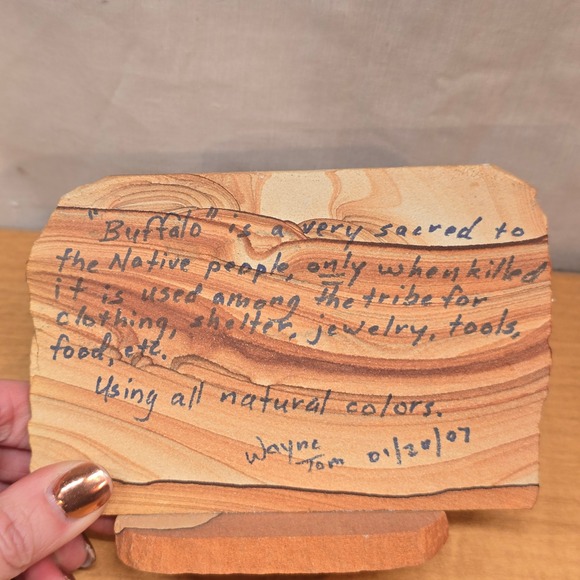 "Buffalo" is a very sacred to
the Native people, only when killed
it is used among the tribe for
clothing, shelter, jewelry, tools,
food, etc.
Using all natural colors.
Wayne
Tom 01/20/07